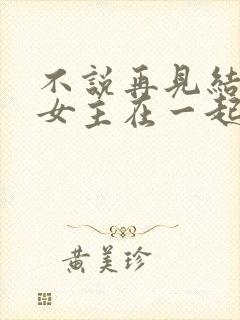 不說再見結
女主在一起
黄美珍